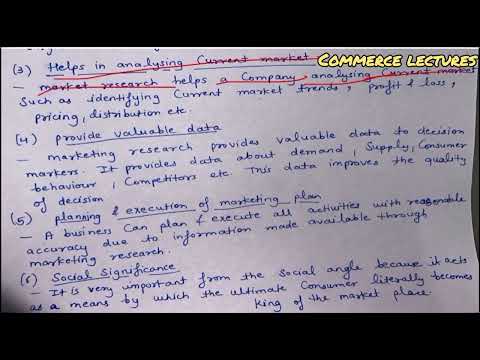 Commerce lectures
(3) Helps in analysing Current market
- market research helps a Company analysing Current market
Such as identifying Current market trends, profit & loss,
pricing, distribution etc.
(4) provide valuable data
- marketing research provides valuable data to decision
markers. It provides data about demand, Supply, Consumer
behaviour, Competitors etc. This data improves the quality
of decision
(5) planning & execution of marketing plan
- A business Can plan & execute all activities with reasonable
accuracy due to information made available through
marketing research.
(6) Social Significance
- It is very important from the Social angle because it acts
as a means by which the ultimate Consumer literally becomes
king of the market place.